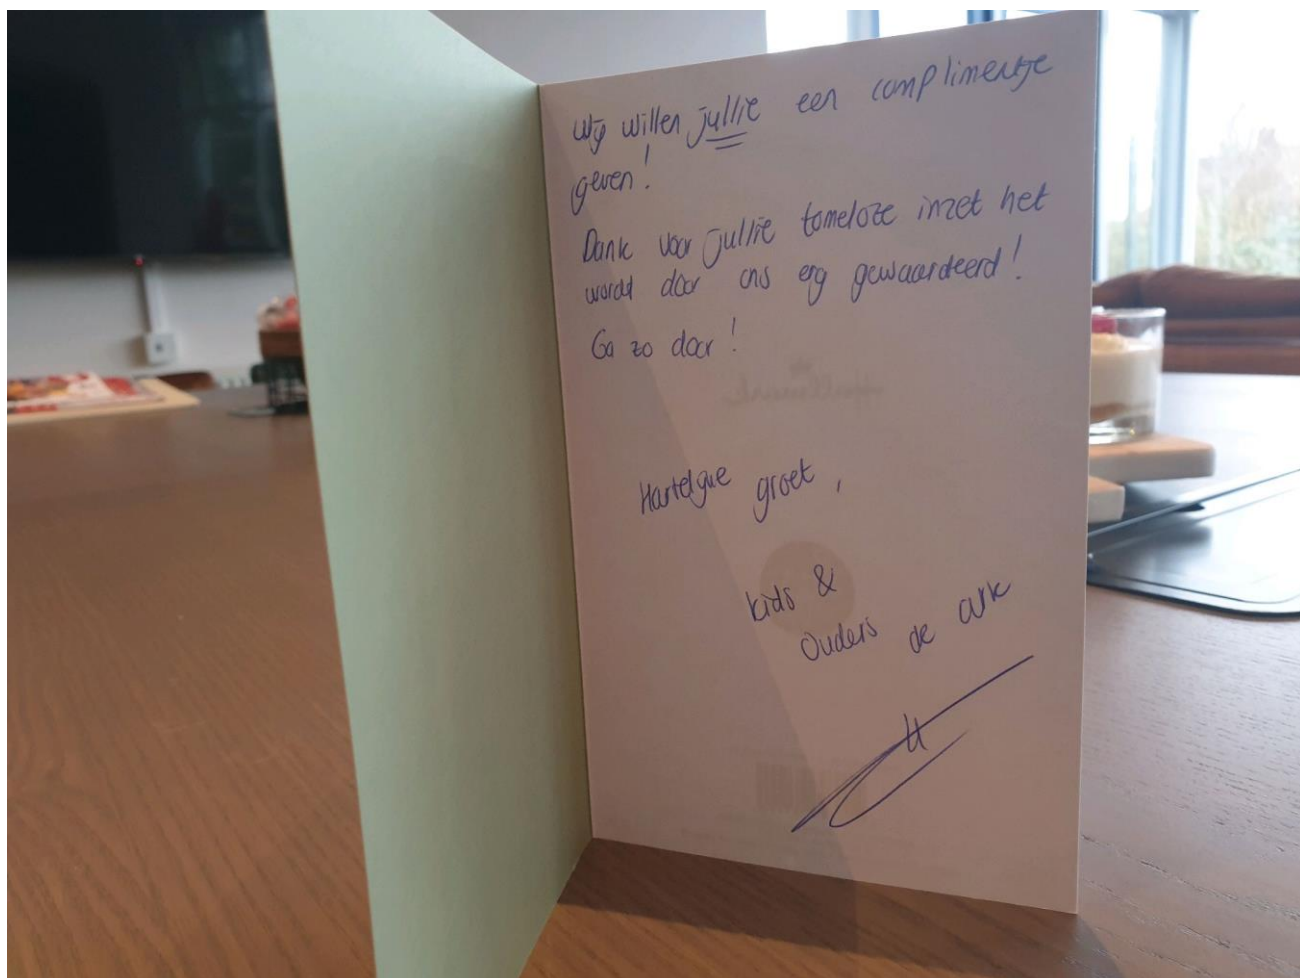 Wij willen jullie een complimentje
geven!
Dank voor jullie tomeloze inzet het
wordt door ons erg gewaardeerd!
Ga zo door!
Hallmark
Hartelijke groet,
kids &
Ouders de ark